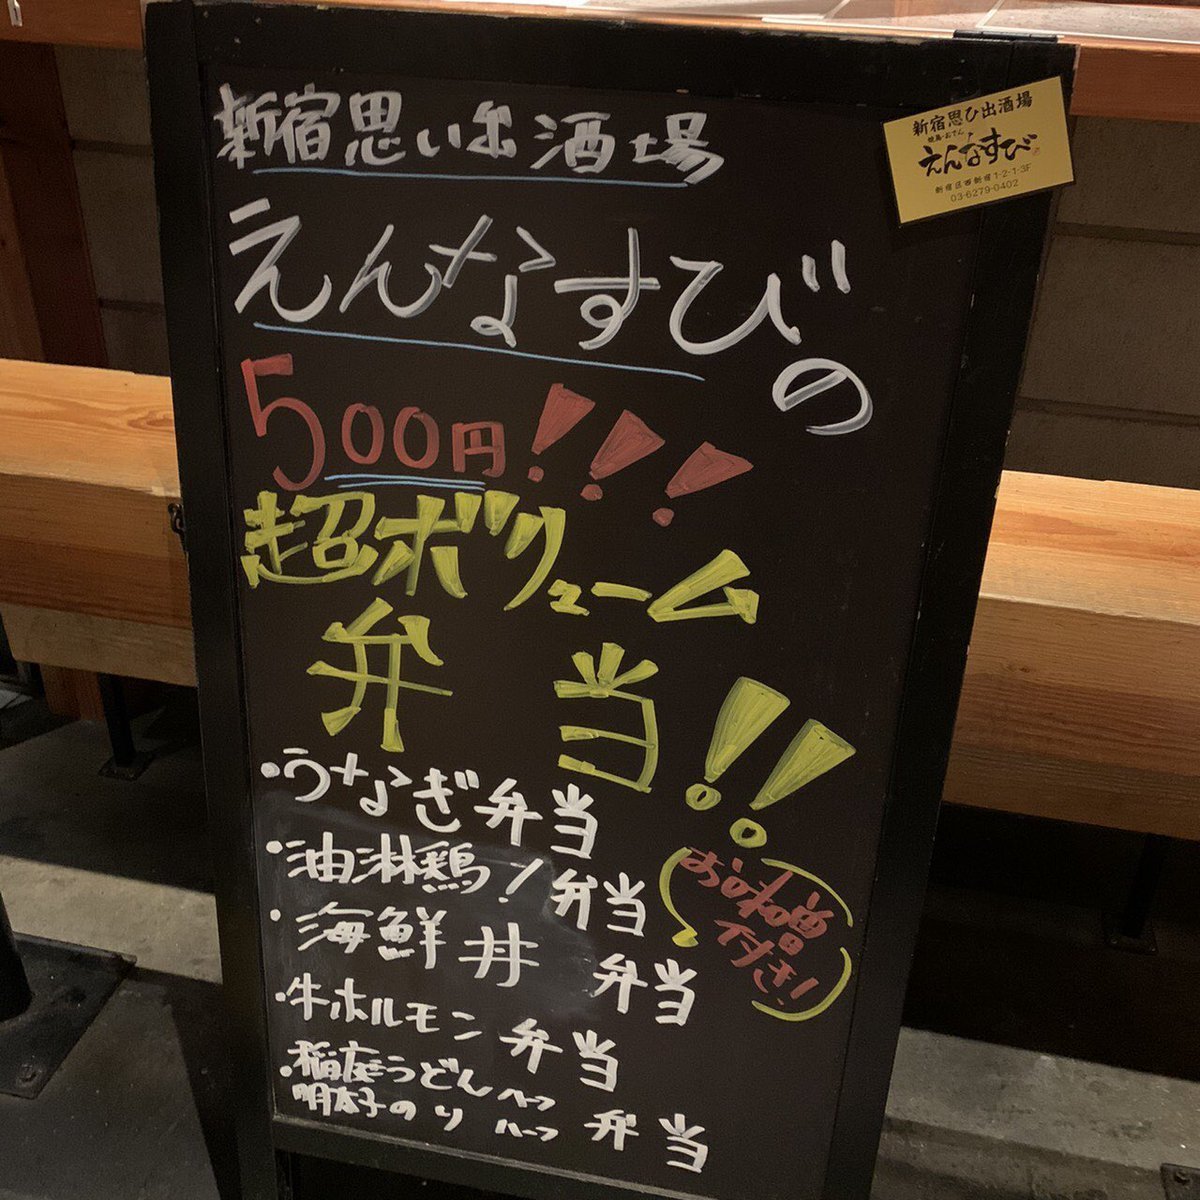 新宿思い出酒場
えんなすびの
500円!!!
超ボリューム
弁当!!
・うなぎ弁当
・油淋鶏!弁当
・海鮮丼 弁当
・牛ホルモン弁当
・稲庭うどんハーフ
明太子のりハーフ 弁当
お味噌
付き!
新宿思ひ出酒場
焼鳥・おでん
えんなすび
新宿区西新宿1-2-1-3F
03-6279-0402